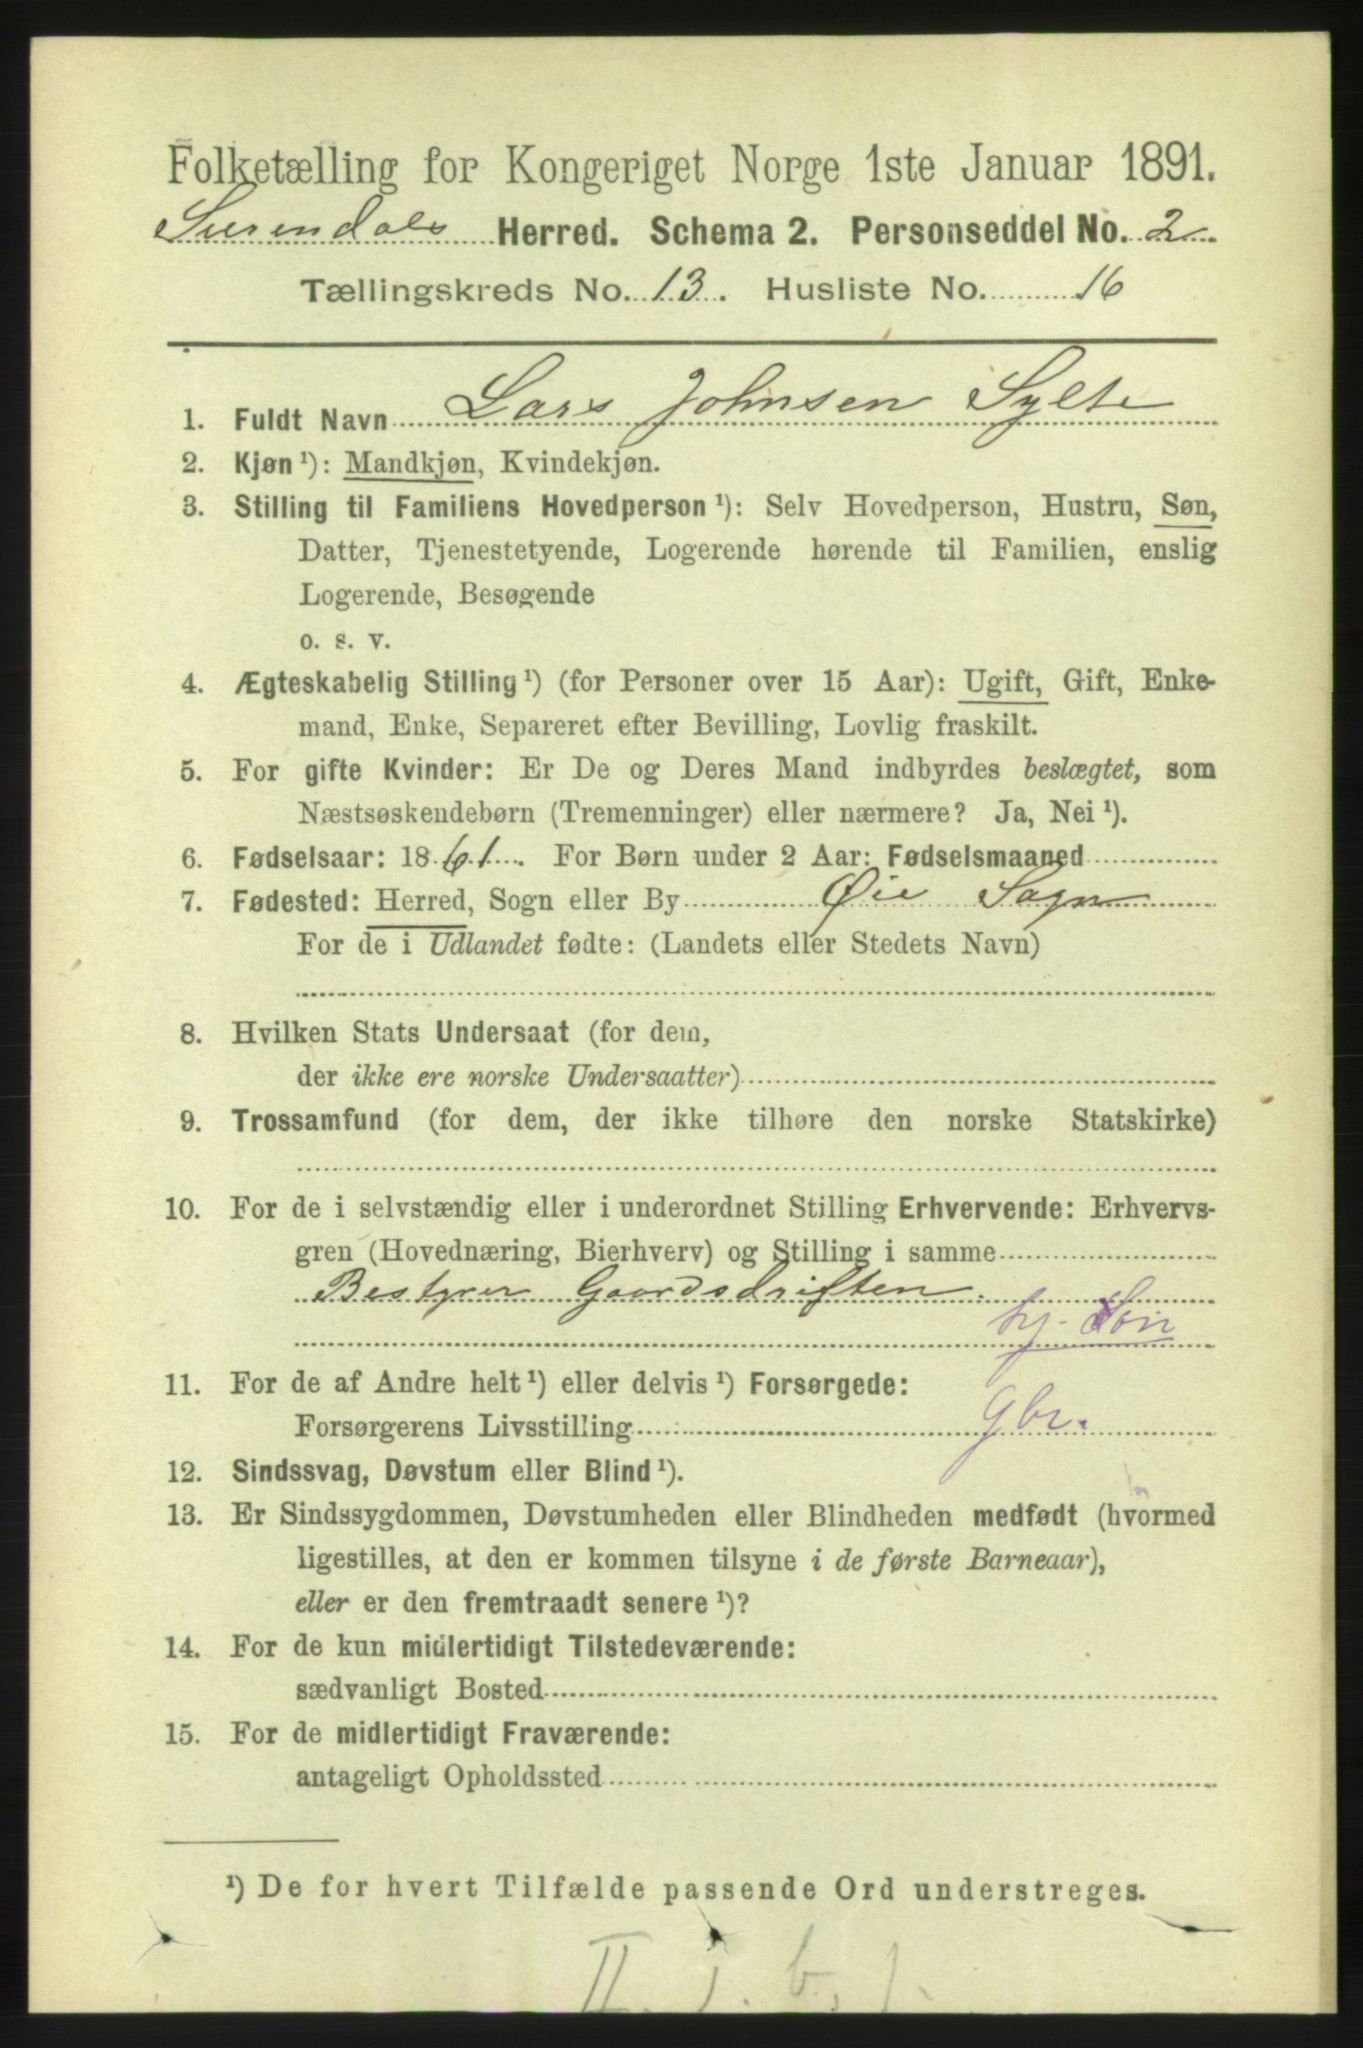 Folketælling for Kongeriget Norge 1ste Januar 1891.
Surendals Herred. Schema 2. Personseddel No. 2
Tællingskreds No. 13. Husliste No. 16
1. Fuldt Navn Lars Johnsen Sylte
2. Kjøn ¹): Mandkjøn, Kvindekjøn.
3. Stilling til Familiens Hovedperson ¹): Selv Hovedperson, Hustru, Søn,
Datter, Tjenestetyende, Logerende hørende til Familien, enslig
Logerende, Besøgende
o. s. v.
4. Ægteskabelig Stilling ¹) (for Personer over 15 Aar): Ugift, Gift, Enke-
mand, Enke, Separeret efter Bevilling, Lovlig fraskilt.
5. For gifte Kvinder: Er De og Deres Mand indbyrdes beslægtet, som
Næstsøskendebørn (Tremenninger) eller nærmere? Ja, Nei ¹).
6. Fødselsaar: 1861. For Børn under 2 Aar: Fødselsmaaned
7. Fødested: Herred, Sogn eller By Øie Sogn
For de i Udlandet fødte: (Landets eller Stedets Navn)
8. Hvilken Stats Undersaat (for dem,
der ikke ere norske Undersaatter)
9. Trossamfund (for dem, der ikke tilhøre den norske Statskirke)
10. For de i selvstændig eller i underordnet Stilling Erhvervende: Erhvervs-
gren (Hovednæring, Bierhverv) og Stilling i samme
Bestyrer Gaardsdriften.
hj. Søn
11. For de af Andre helt ¹) eller delvis ¹) Forsørgede:
Forsørgerens Livsstilling Gbr.
12. Sindssvag, Døvstum eller Blind ¹).
13. Er Sindssygdommen, Døvstumheden eller Blindheden medfødt (hvormed
ligestilles, at den er kommen tilsyne i de første Barneaar),
eller er den fremtraadt senere ¹)?
14. For de kun midlertidigt Tilstedeværende:
sædvanligt Bosted
15. For de midlertidigt Fraværende:
antageligt Opholdssted
¹) De for hvert Tilfælde passende Ord understreges.
II. 1. b. 1.